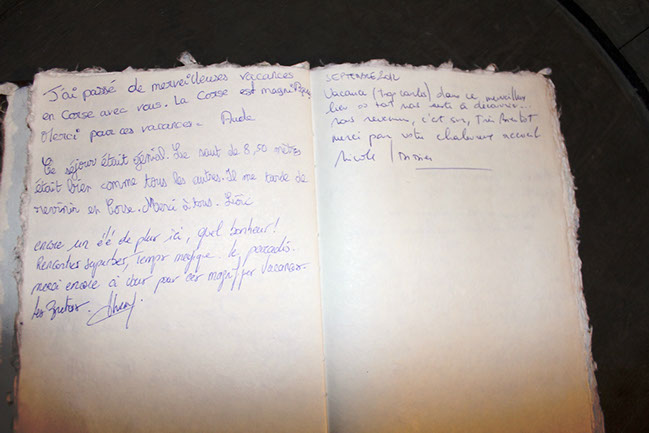 J'ai passé de merveilleuses vaccances
en Corse avec vous. La Corse est magnifique
Merci pour ces vacances. Aude
Ce séjour était génial. Le saut de 8,50 mètres
était bien comme tous les autres. Il me tarde de
revenir en Corse. Merci à tous. Loïc
encore un été de plus ici, quel bonheur!
Rencontres superbes, temps magique. le paradis.
merci encore à vous pour ces magnifiques vacances.
Les
SEPTEMBRE 2012
Vacances (trop courtes) dans ce merveilleux
lieu où tout nos reste à découvrir.
nous reviendrons, c'est sur, Très Bientôt
merci pour votre chaleureux accueil
Nicole / Didier